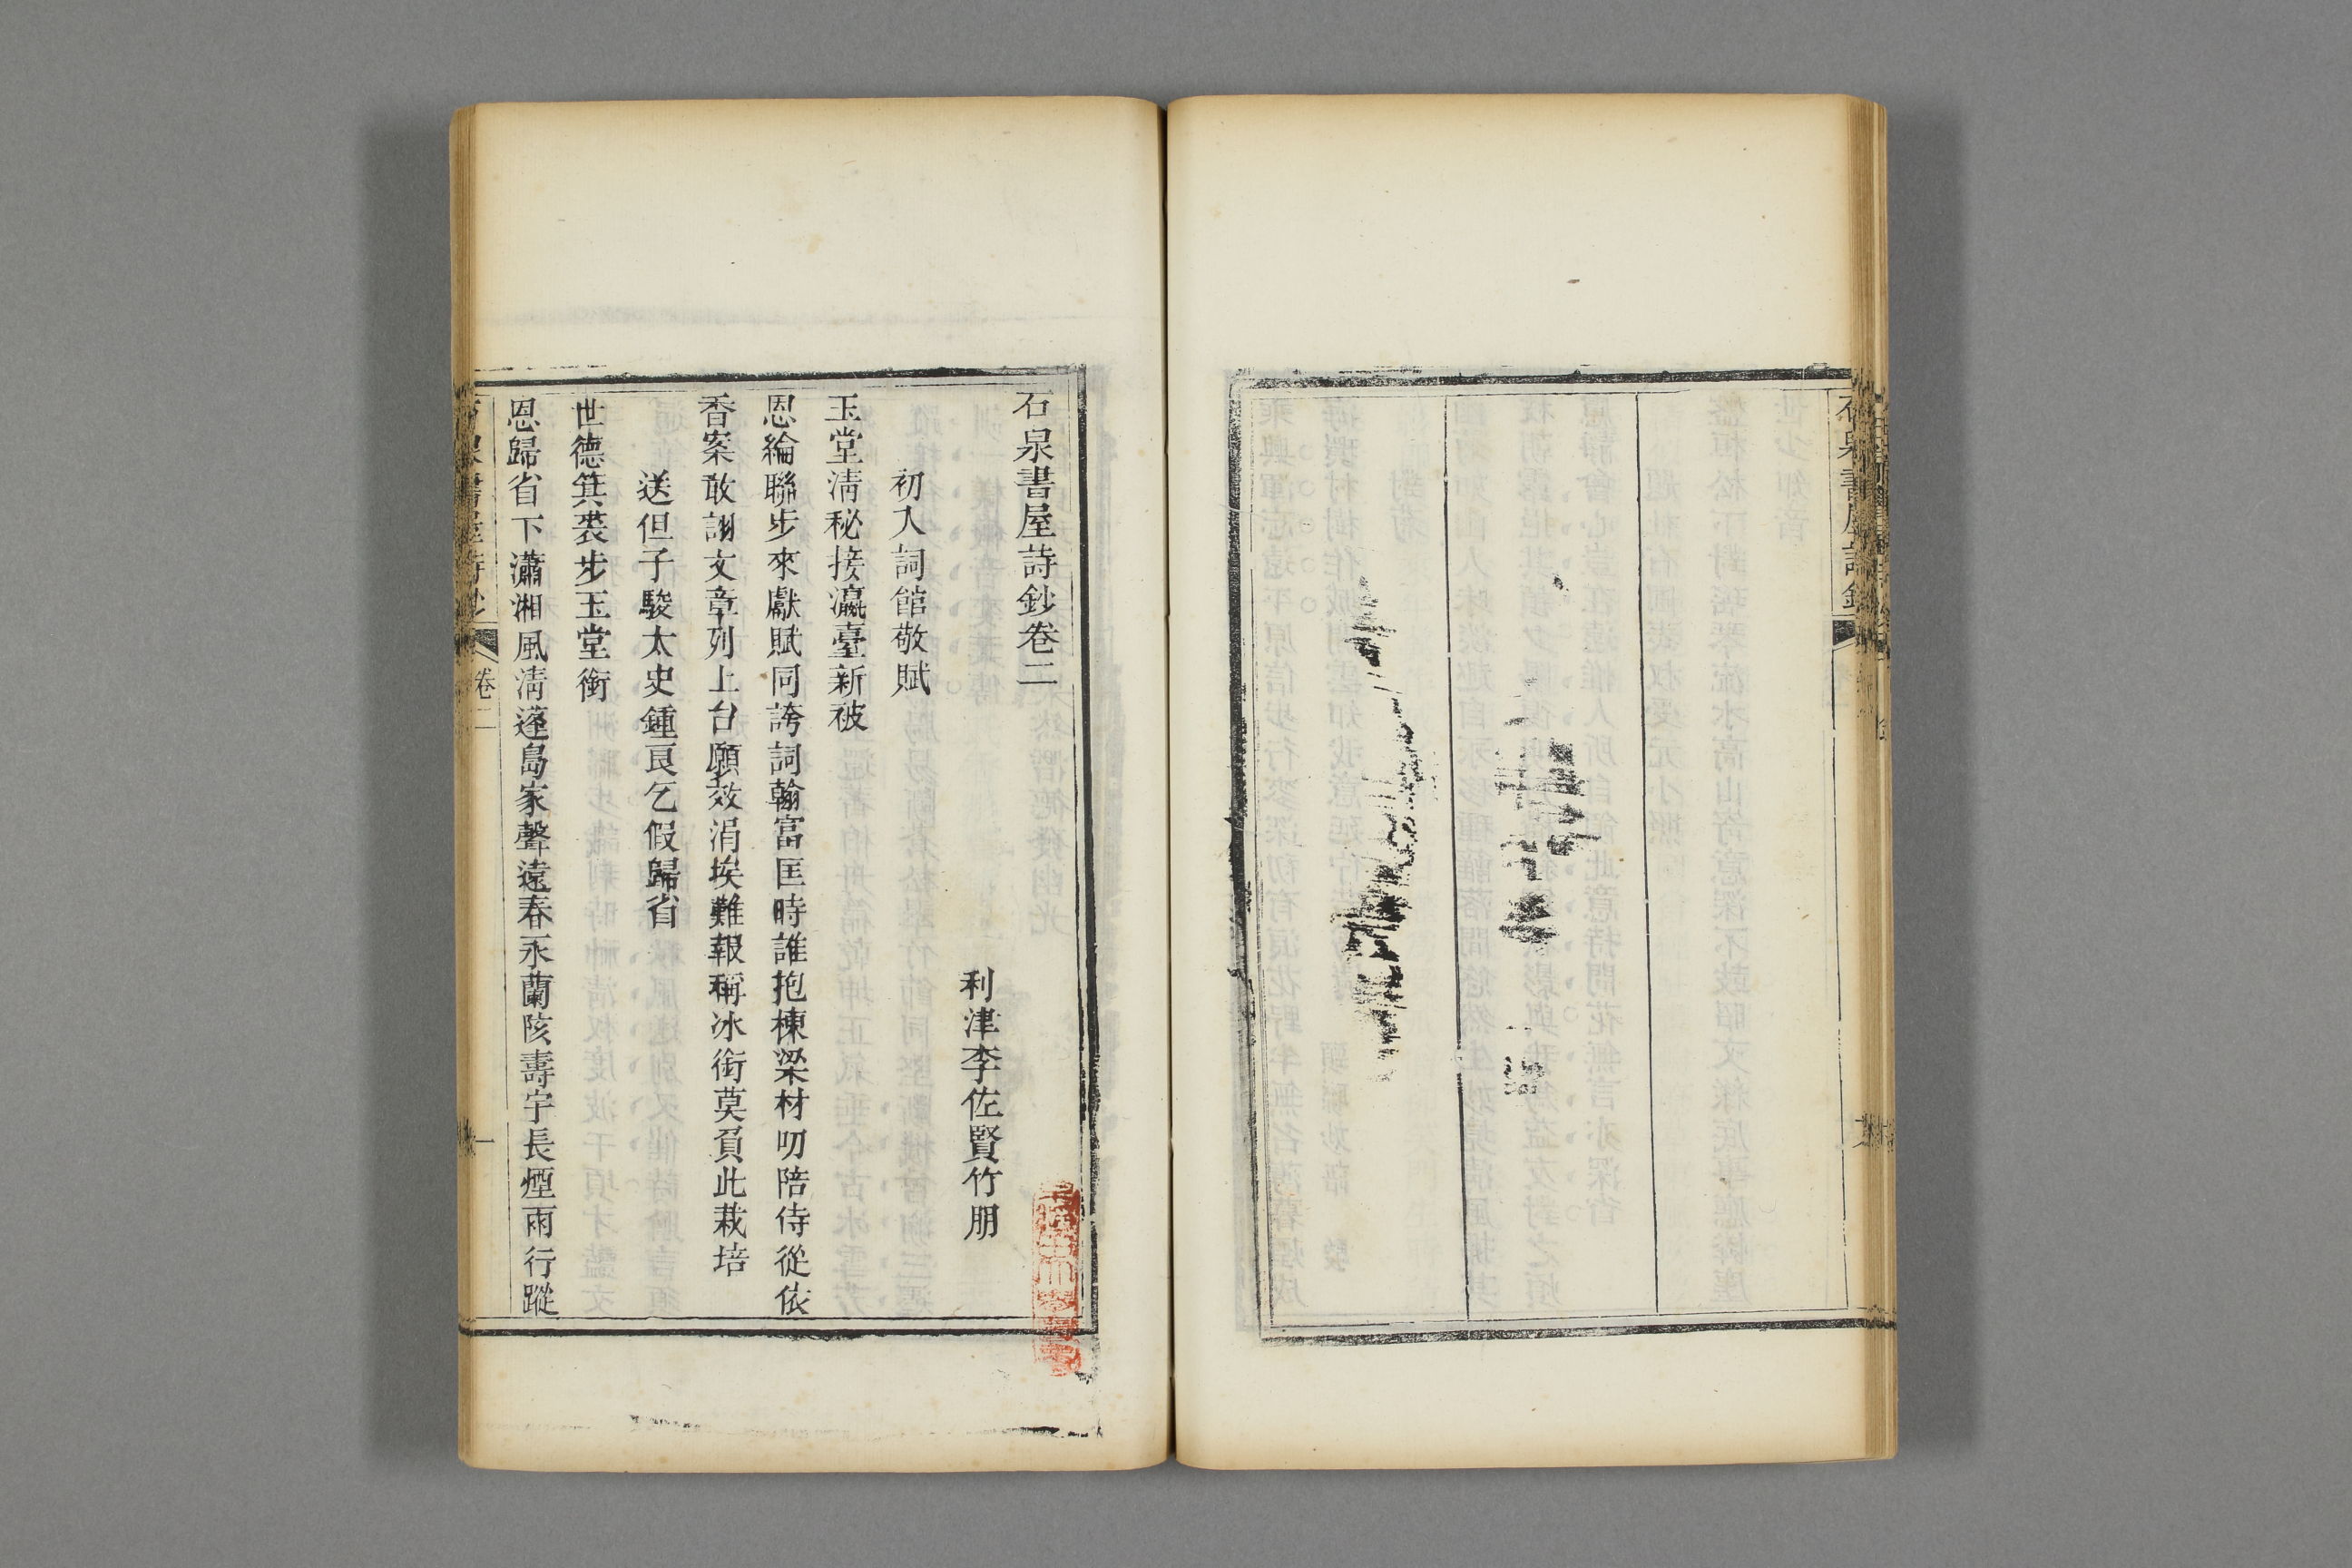 石泉書屋詩鈔
石泉書屋詩鈔卷二
利津李佐賢竹朋
初入詞館敬賦
玉堂清秘接瀛臺新被
恩綸聯步來獻賦同誇詞翰富匡時誰抱棟梁材叨陪侍從依
香案敢詡文章列上台願效涓埃難報稱冰銜莫負此栽培
送但子駿太史鍾良乞假歸省
世德箕裘步玉堂銜
恩歸省下瀟湘風淸蓬島家聲遠春永蘭陔壽宇長煙雨行蹤
石泉書屋詩鈔
卷二
一